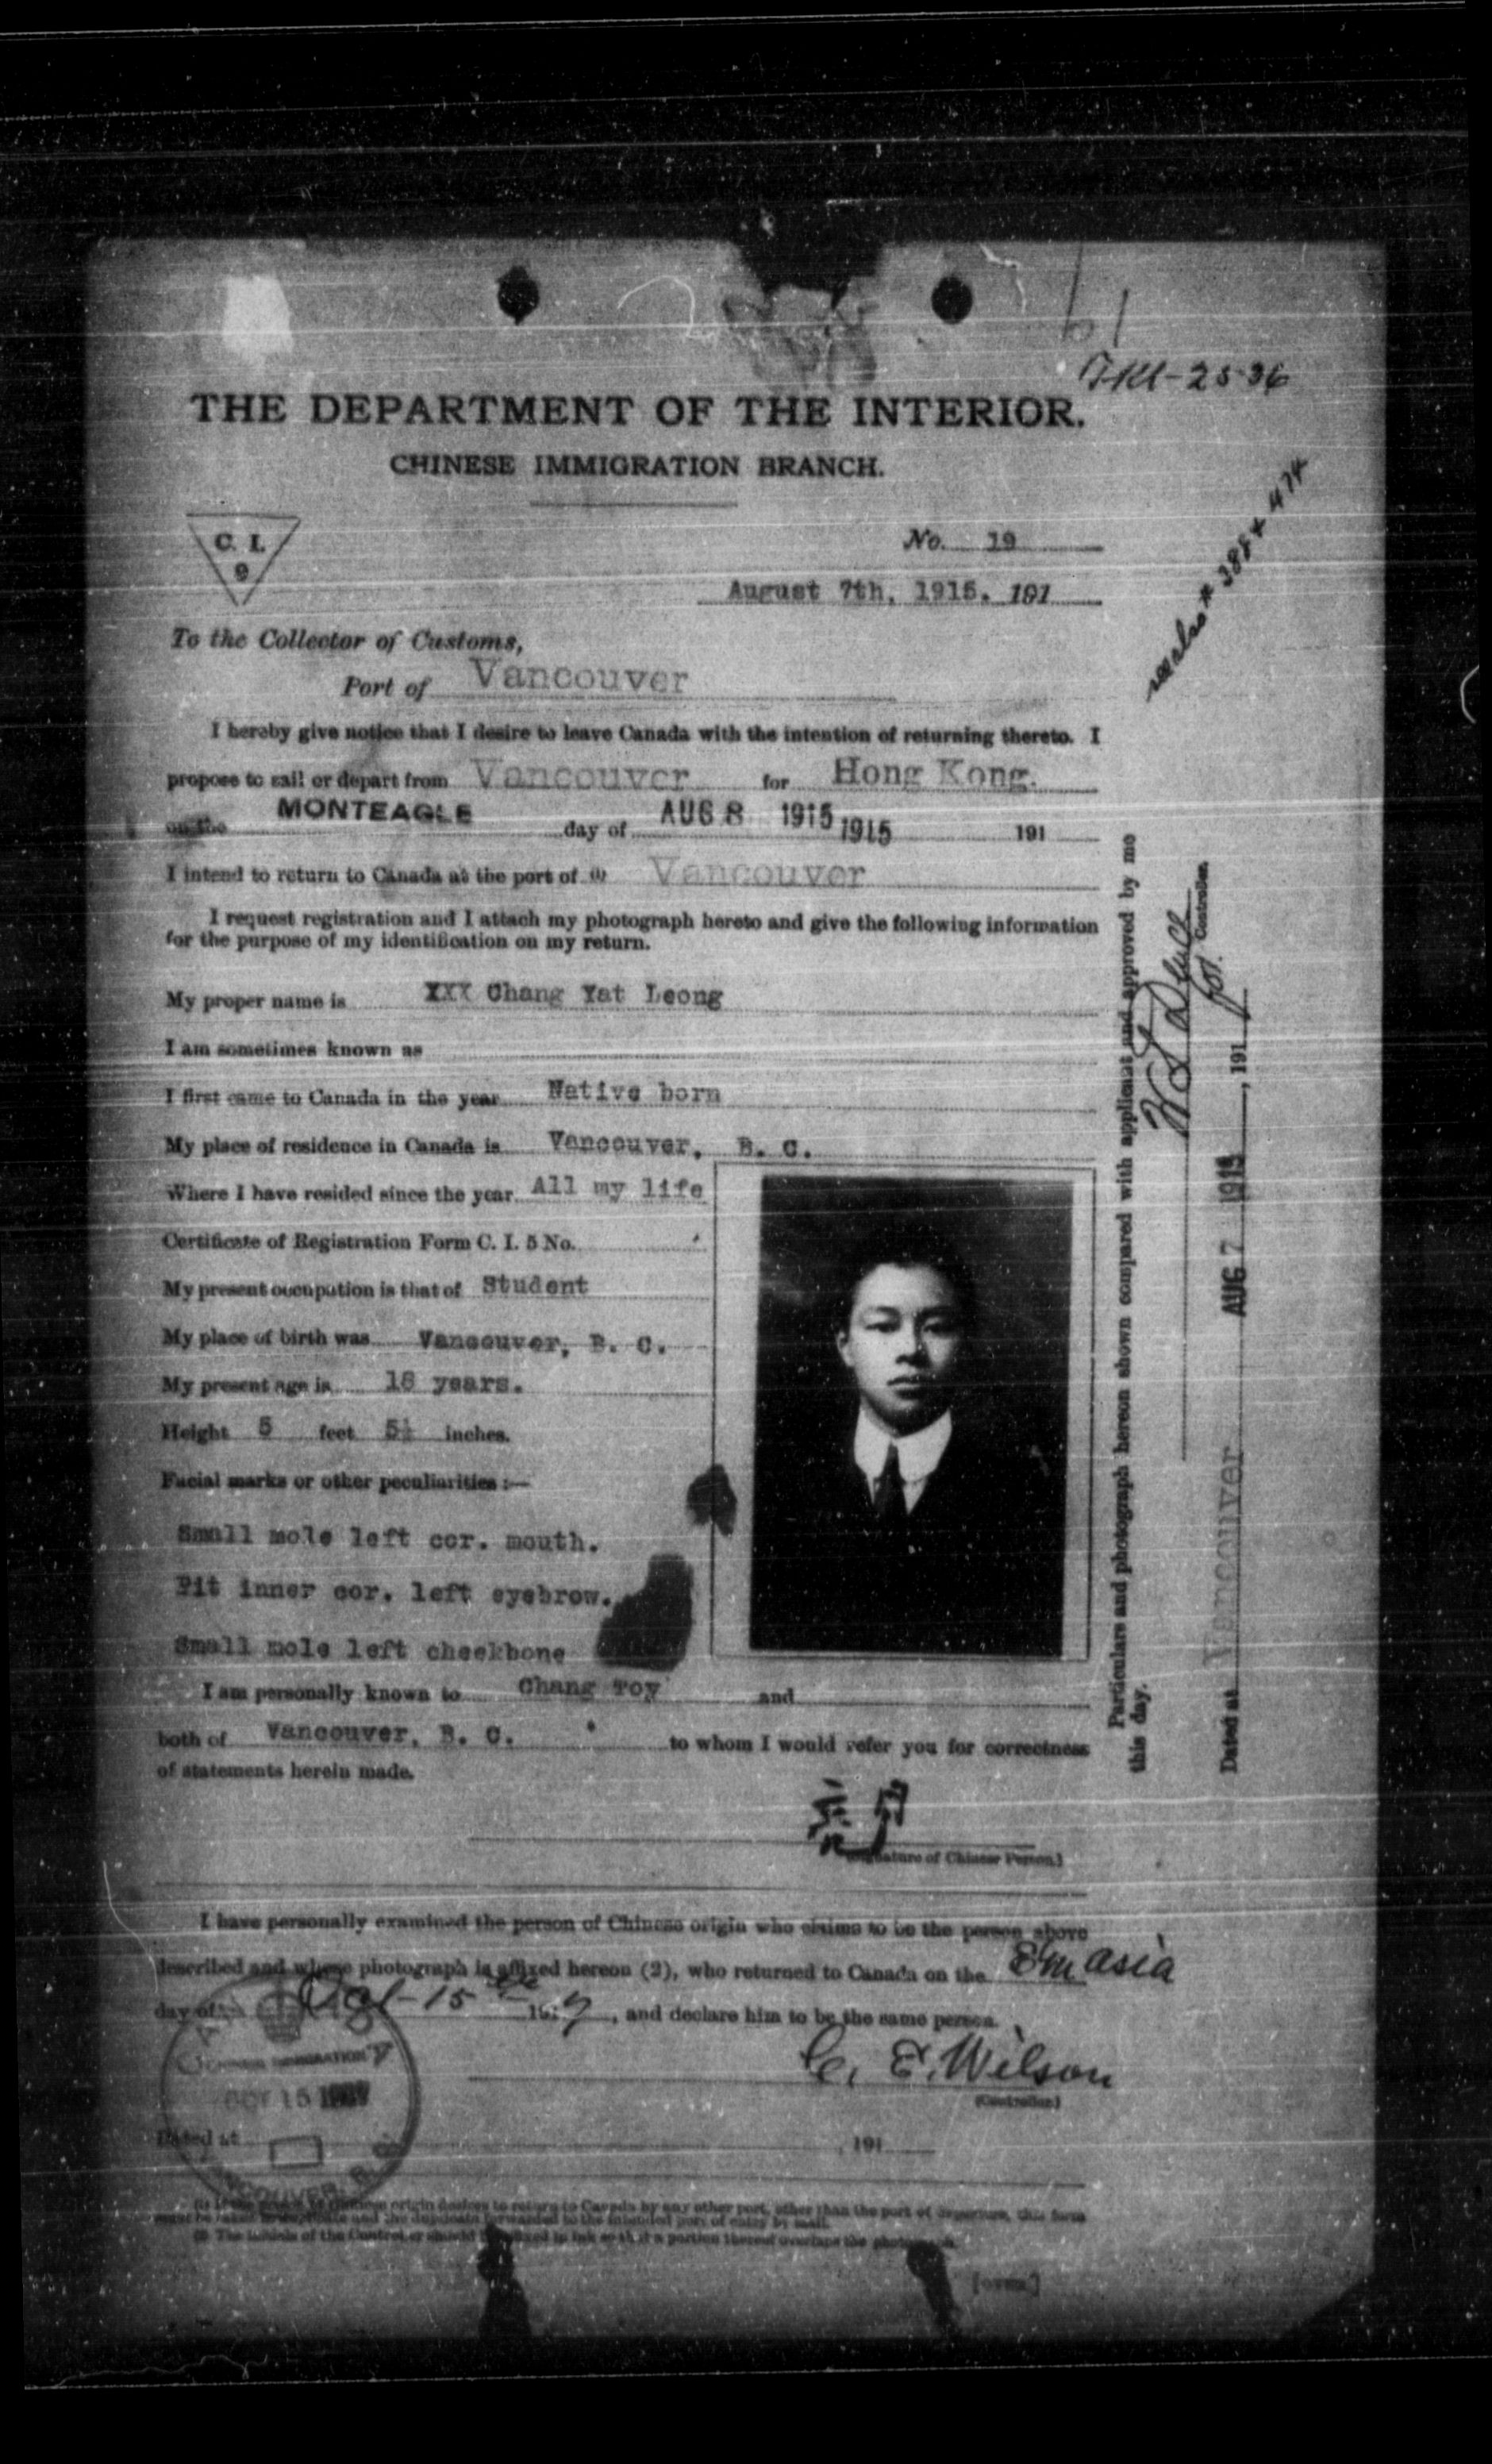 THE DEPARTMENT OF THE INTERIOR.
CHINESE IMMIGRATION BRANCH.
C. I.
9
No. 19
August 7th, 1915. 191
see also # 388 & 474
To the Collector of Customs,
Port of Vancouver
I hereby give notice that I desire to leave Canada with the intention of returning thereto. I
propose to sail or depart from Vancouver for Hong Kong.
on the MONTEAGLE day of AUG 8 1915 1915 191
I intend to return to Canada at the port of (1) Vancouver
I request registration and I attach my photograph hereto and give the following information
for the purpose of my identification on my return.
My proper name is XXX Chang Yat Leong
I am sometimes known as
I first came to Canada in the year Native born
My place of residence in Canada is Vancouver, B. C.
Where I have resided since the year All my life
Certificate of Registration Form C. I. 5 No.
My present occupation is that of Student
My place of birth was Vancouver, B. C.
My present age is 18 years.
Height 5 feet 5½ inches.
Facial marks or other peculiarities :—
Small mole left cor. mouth.
Pit inner cor. left eyebrow.
Small mole left cheekbone
I am personally known to Chang Toy and
both of Vancouver, B. C. to whom I would refer you for correctness
of statements herein made.
(Signature of Chinese Person.)
Particulars and photograph hereon shown compared with applicant and approved by me
this day.
Controller.
Dated at Vancouver AUG 7 1915, 191
I have personally examined the person of Chinese origin who claims to be the person above
described and whose photograph is affixed hereon (2), who returned to Canada on the Em Asia
day of Oct-15th 1917, and declare him to be the same person.
C. E. Wilson
(Controller.)
CANADA
CHINESE IMMIGRATION
OCT 15 1917
VANCOUVER, B. C.
Dated at 191
(1) If the person of Chinese origin desires to return to Canada by any other port, other than the port of departure, this form
must be taken in duplicate and the duplicate forwarded to the intended port of entry by mail.
(2) The initials of the Controller should be affixed in ink so that a portion thereof overlaps the photograph.
[OVER.]